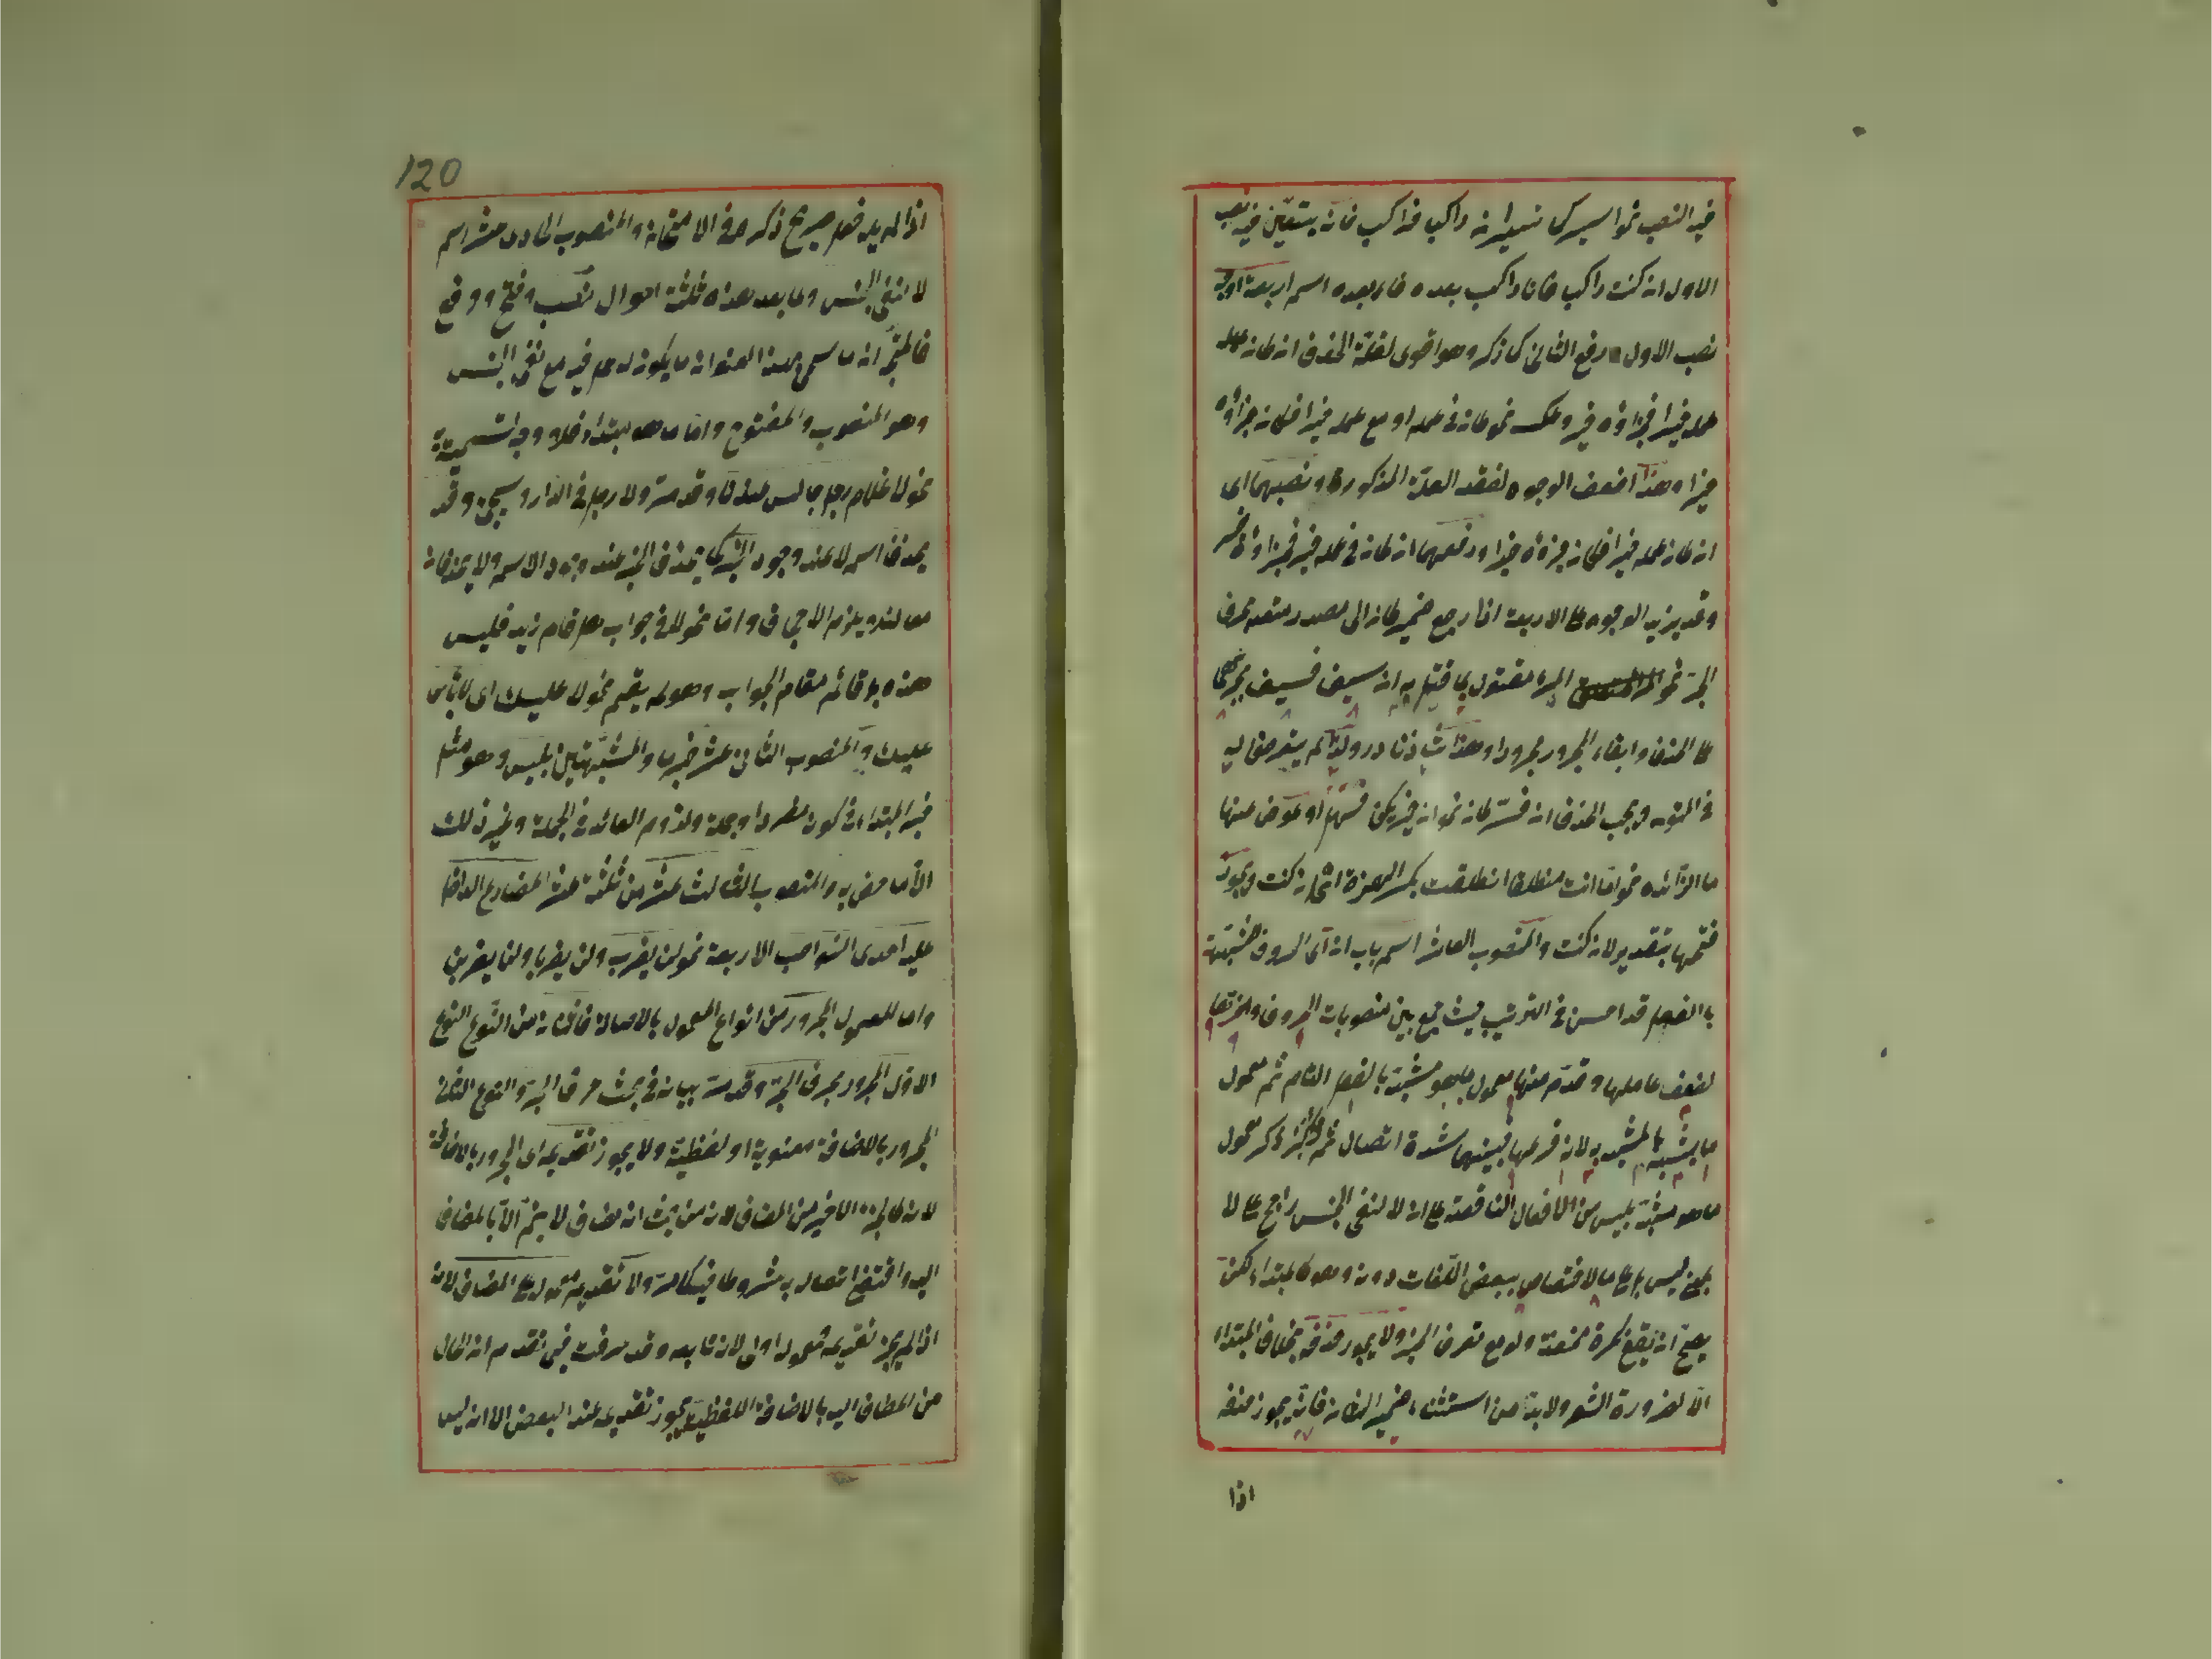 فيه النصب نحو اسير كما تسير ان راكبا فراكب فانه يتعين فيه نصب
الاول ان كنت راكبا فانا راكب بعده فاء بعده اسم اربعة اوجه
نصب الاول ورفع الثاني كما ذكر وهو اقوى لقلة الحذف ان كان عمله
عمله خيرا فجزاؤه خير وعكسه نحو كان في عمله او مع عمله خير فكان جزاؤه
خيرا وهذا اضعف الوجوه لفقد العلة المذكورة ونصبهما اى
ان كان عمله خيرا فكان جزاؤه خيرا ورفعهما ان كان في عمله خير فجزاؤه خير
وقد يزيد الوجوه على الاربعة اذا رجع ضمير كان الى مصدر متعد بحرف
الجر نحو المرء مقتول بما قتل به ان سيف فسيف بجرهما
على الحذف وابقاء المجرور مجرورا وهذا شاذ نادر ولذا لم يتعرض له
في المتن ويجب الحذف ان فسر كان نحو ان خير يكن او عوض عنها
ما الزائدة نحو اما انت منطلقا انطلقت بكسر الهمزة اى ان كنت ويجوز
فتحها بتقدير لان كنت والمنصوب العاشر اسم باب ان اى الحروف المشبهة
بالفعل قد احسن في الترتيب حيث جمع بين منصوبات الحروف واخرتها
لضعف عاملها وقدم منها معمول ما هو مشبه بالفعل التام ثم معمول
ما يشبه بالمشبه به لانه فرعها فبينهما شدة اتصال ثم ذكر معمول
ما هو مشبه بليس من الافعال الناقصة على ان لا لنفي الجنس راجح على لا
بمعنى ليس بل على ما لاختصاص ببعض اللغات دونه وهو كالمبتداء لكن
يصح ان يقع نكرة محضة ولو مع تعرف الخبر ولا يجوز حذفه بخلاف المبتداء
الا لضرورة الشعر ولا بد من استثناء ضمير الشان فانه يجوز حذفه
اذا
120
اذا لم يله فعل صريح ذكره في الامتحان والمنصوب الحادى عشر اسم
لا لنفي الجنس وما بعد هذه ثلثة احوال نصب وفتح ورفع
ان ما سمى بهذا العنوان ما يكون لا عمل فيه مع نفي الجنس
وهو المنصوب والمفتوح واما ما هو مبتداء فلا وجه لتسميته
نحو لا غلام رجل جالس عندنا وقد مر ولا رجل في الدار وسيجئ وقد
يحذف اسم لا عند وجود الخبر كما يحذف الخبر عند وجود الاسم ولا يحذفان
معا لئلا يلزم الاجحاف واما نحو لا في جواب هل قام زيد فليس
هذه بل قائم مقام الجواب وهو لم يقم نحو لا عليك اى لا بأس
عليك والمنصوب الثاني عشر خبر ما ولا المشبهتين بليس وهو مثل
خبر المبتداء في كونه مفردا وجملة ولزوم العائد في الجملة وغير ذلك
الا ما خص به والمنصوب الثالث عشر من ثلثة عشر المضارع الداخل
عليه احدى النواصب الاربعة نحو لن يضرب ولن يضربا ولن يضربن
واما المعمول المجرور من انواع المعمول بالاصالة فاثنان من النوع النوع
الاول المجرور بحرف الجر وقد مر بيانه في بحث حرف الجر والنوع الثاني
المجرور بالاضافة معنوية او لفظية ولا يجوز تقديمه اى المجرور بالاضافة
لانه كالجزء الاخير من المضاف لانه من حيث انه مضاف لا يتم الا بالمضاف
اليه واقتضى اتصاله به مشروطا فيه كما مر ولا تقديم معموله على المضاف لانه
اذا لم يجز تقديمه فمعموله اولى لانه تابعه وقد عرفت فيما تقدم ان الحال
من المضاف اليه بالاضافة اللفظية يجوز تقديمه عند البعض الا انه ليس